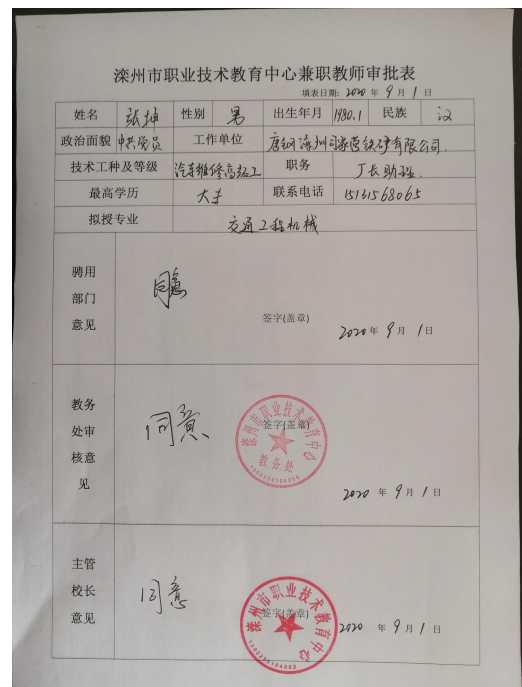 滦州市职业技术教育中心兼职教师审批表
填表日期: 2020 年 9 月 1 日
姓名 张坤 性别 男 出生年月 1980.1 民族 汉
政治面貌 中共党员 工作单位 唐钢滦州司家营铁矿有限公司.
技术工种及等级 汽车维修高级工 职务 厂长助理.
最高学历 大专 联系电话 15131568065
拟授专业 交通工程机械
聘用部门意见
同意
签字(盖章)
2020 年 9 月 1 日
教务处审核意见
同意
签字(盖章)
滦州市职业技术教育中心
教务处
2020 年 9 月 1 日
主管校长意见
同意
签字(盖章)
滦州市职业技术教育中心
2020 年 9 月 1 日